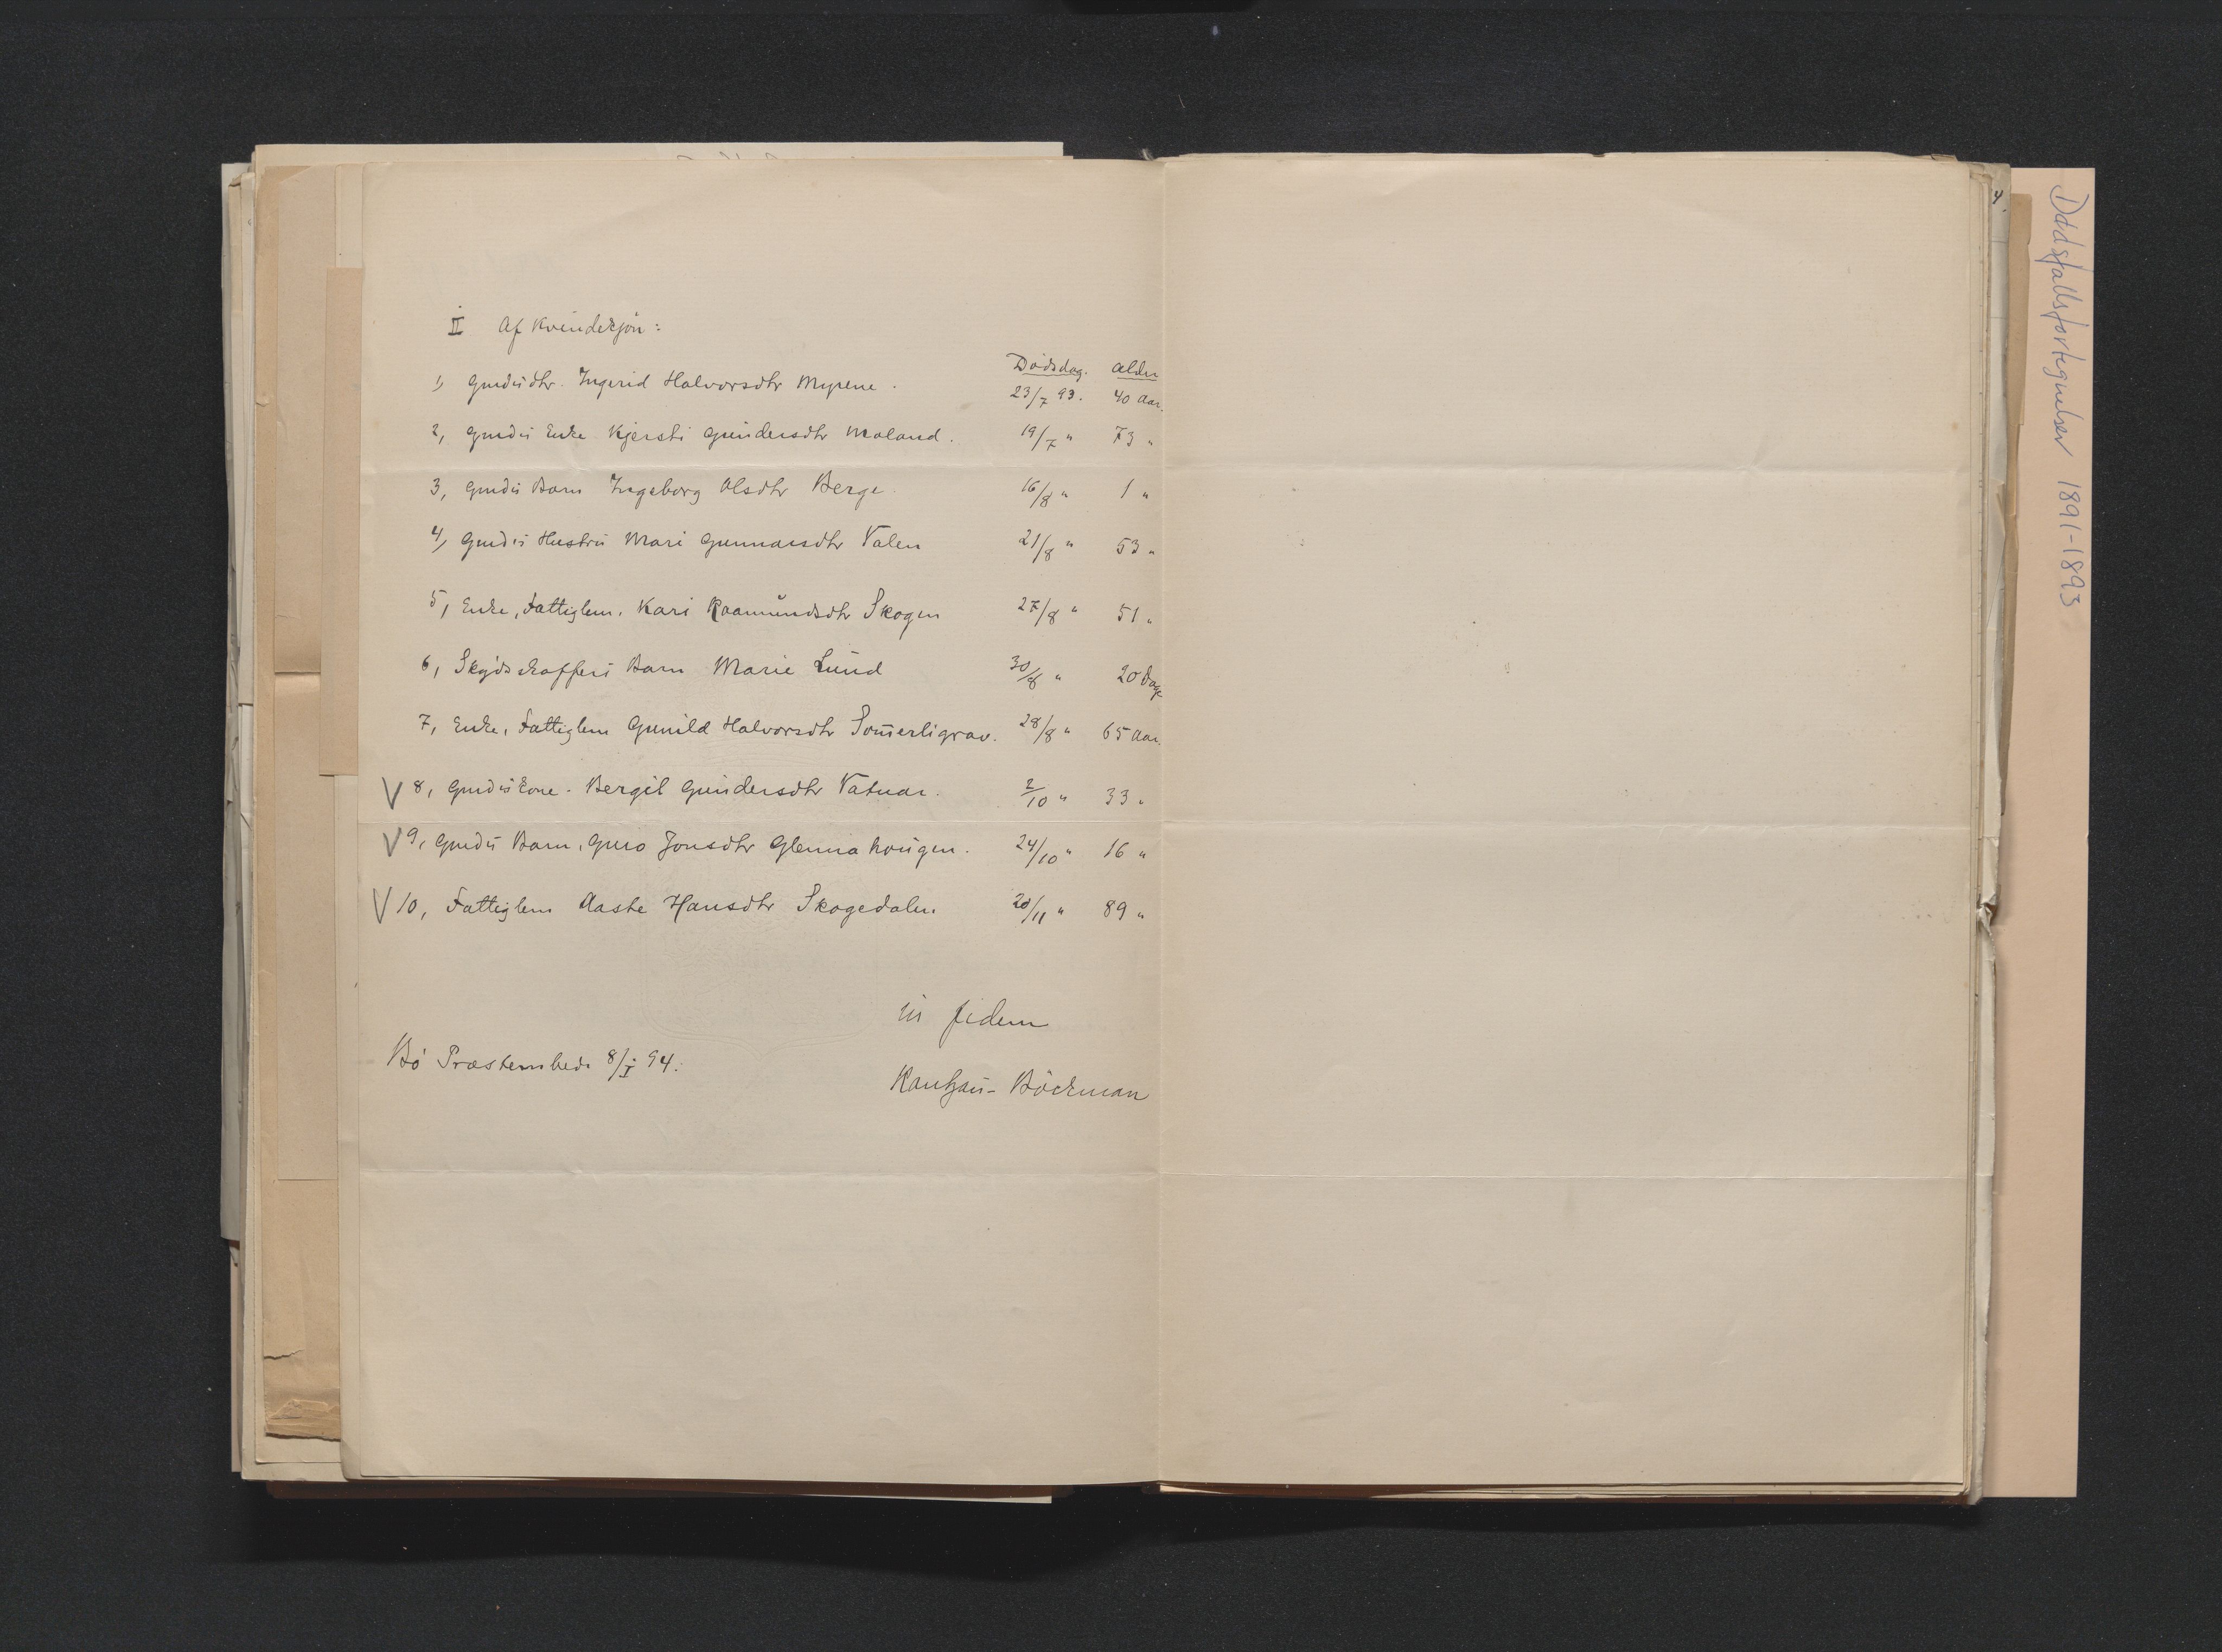 II Af Kvindekjön:
Dödsdag. Alder
1, Grmdsdtr. Ingerid Halvorsdtr Myrene. 23/7 93. 40 Aar.
2, Grmds Enke Kjersti Gundersdtr Moland. 19/7 " 73 "
3, Grmds Barn Ingeborg Olsdtr Berge 16/8 " 1 "
4, Grmds Hustru Mari Gunnarsdtr Valen 21/8 " 53 "
5, Enke, Fattiglem. Kari Raamundsdtr Skogen 27/8 " 51 "
6, Skydsskaffers Barn Marie Lund 30/8 " 20 Dage
7, Enke, Fattiglem Gunild Halvorsdtr Som̄erligrav. 28/8 " 65 Aar.
V 8, Grmds Kone. Bergit Gundersdtr Vatnar. 2/10 " 33 "
V 9, Grmds Barn, Guro Jonsdtr Glenna hougen. 24/10 " 16 "
V 10, Fattiglem Aaste Hansdtr Skogedalen 20/11 " 89 "
in fidem
Bö Præstembede 8/I 94.
Rantzau-Böckman
4.
Dødsfallsfortegnelser 1891-1893